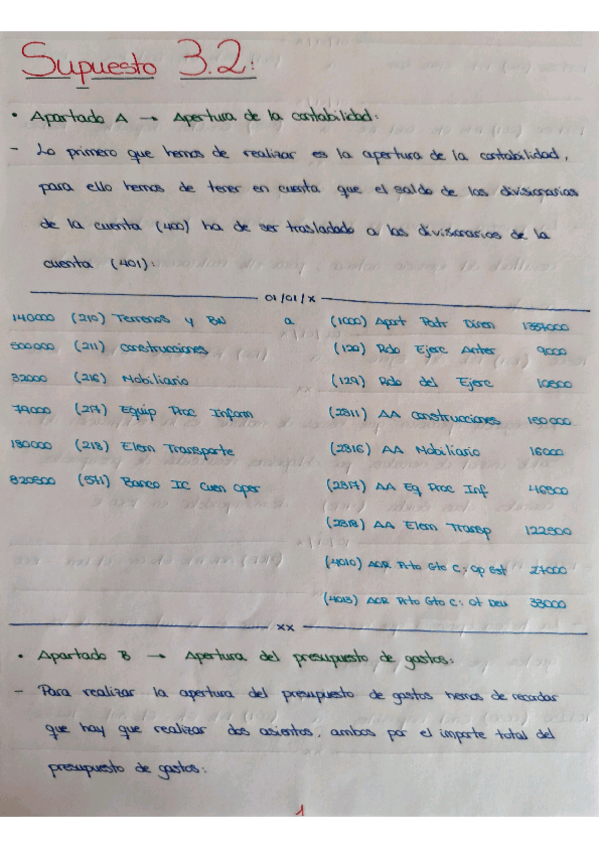 Supuesto 3.2:
• Apartado A → Apertura de la contabilidad:
- Lo primero que hemos de realizar es la apertura de la contabilidad,
para ello hemos de tener en cuenta que el saldo de las divisionarias
de la cuenta (400) ha de ser trasladado a las divisionarias de la
cuenta (401):
01/01/x
140000 (210) Terrenos y BN a (1000) Aport Patr Diren 1337000
500000 (211) Construcciones (120) Rdo Ejerc Anter 9000
32000 (216) Mobiliario (129) Rdo del Ejerc 10500
79000 (217) Equip Proc Inform (2811) AA Construcciones 150000
180000 (218) Elem Transporte (2816) AA Mobiliario 16000
820500 (571) Banco IC Cuen Oper (2817) AA Eq Proc Inf 46500
(2818) AA Elem Transp 122500
(4010) ACR Prto Gto C; Op Est 27000
(4013) ACR Prto Gto C; Ot Deu 33000
xx
• Apartado B → Apertura del presupuesto de gastos:
- Para realizar la apertura del presupuesto de gastos hemos de recordar
que hay que realizar dos asientos, ambos por el importe total del
presupuesto de gastos:
1